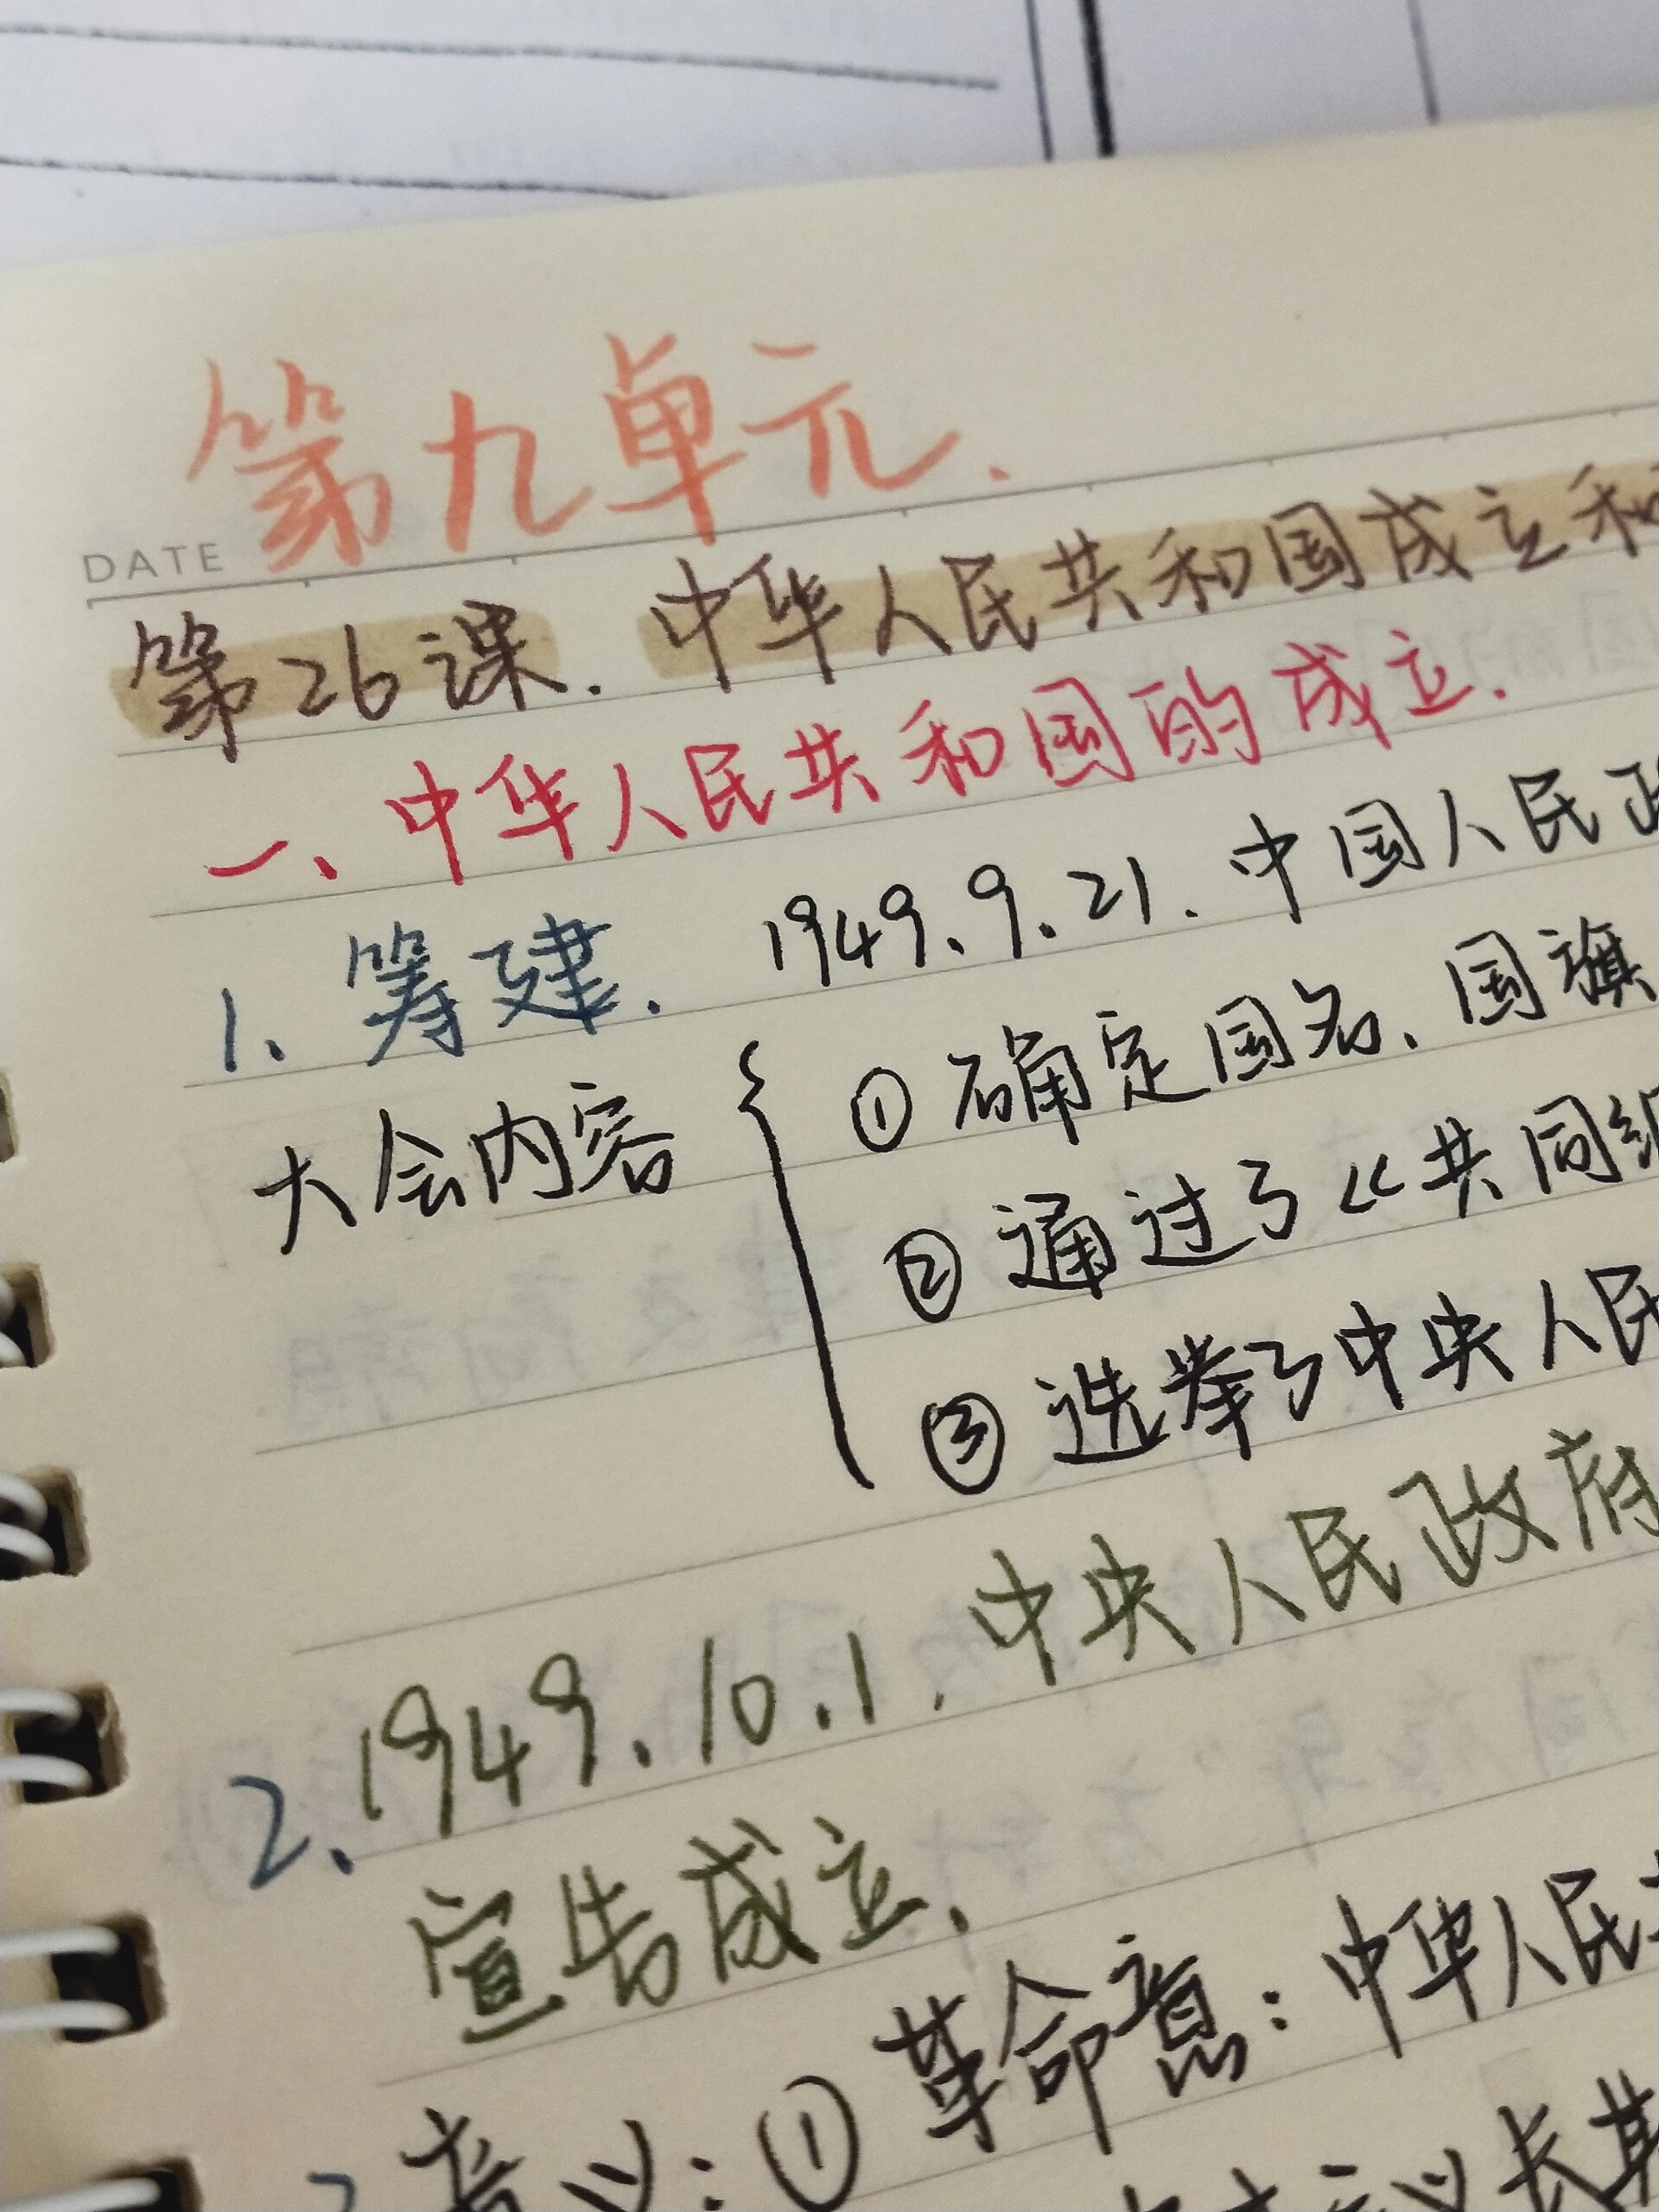 第九单元.
DATE
第26课. 中华人民共和国成立和
一、中华人民共和国的成立.
1、筹建. 1949.9.21. 中国人民
大会内容 ① 确定国名、国旗
② 通过了《共同纲
③ 选举了中央人民
2、1949.10.1, 中央人民政府
宣告成立.
意义: ① 革命意: 中华人民
主义长期